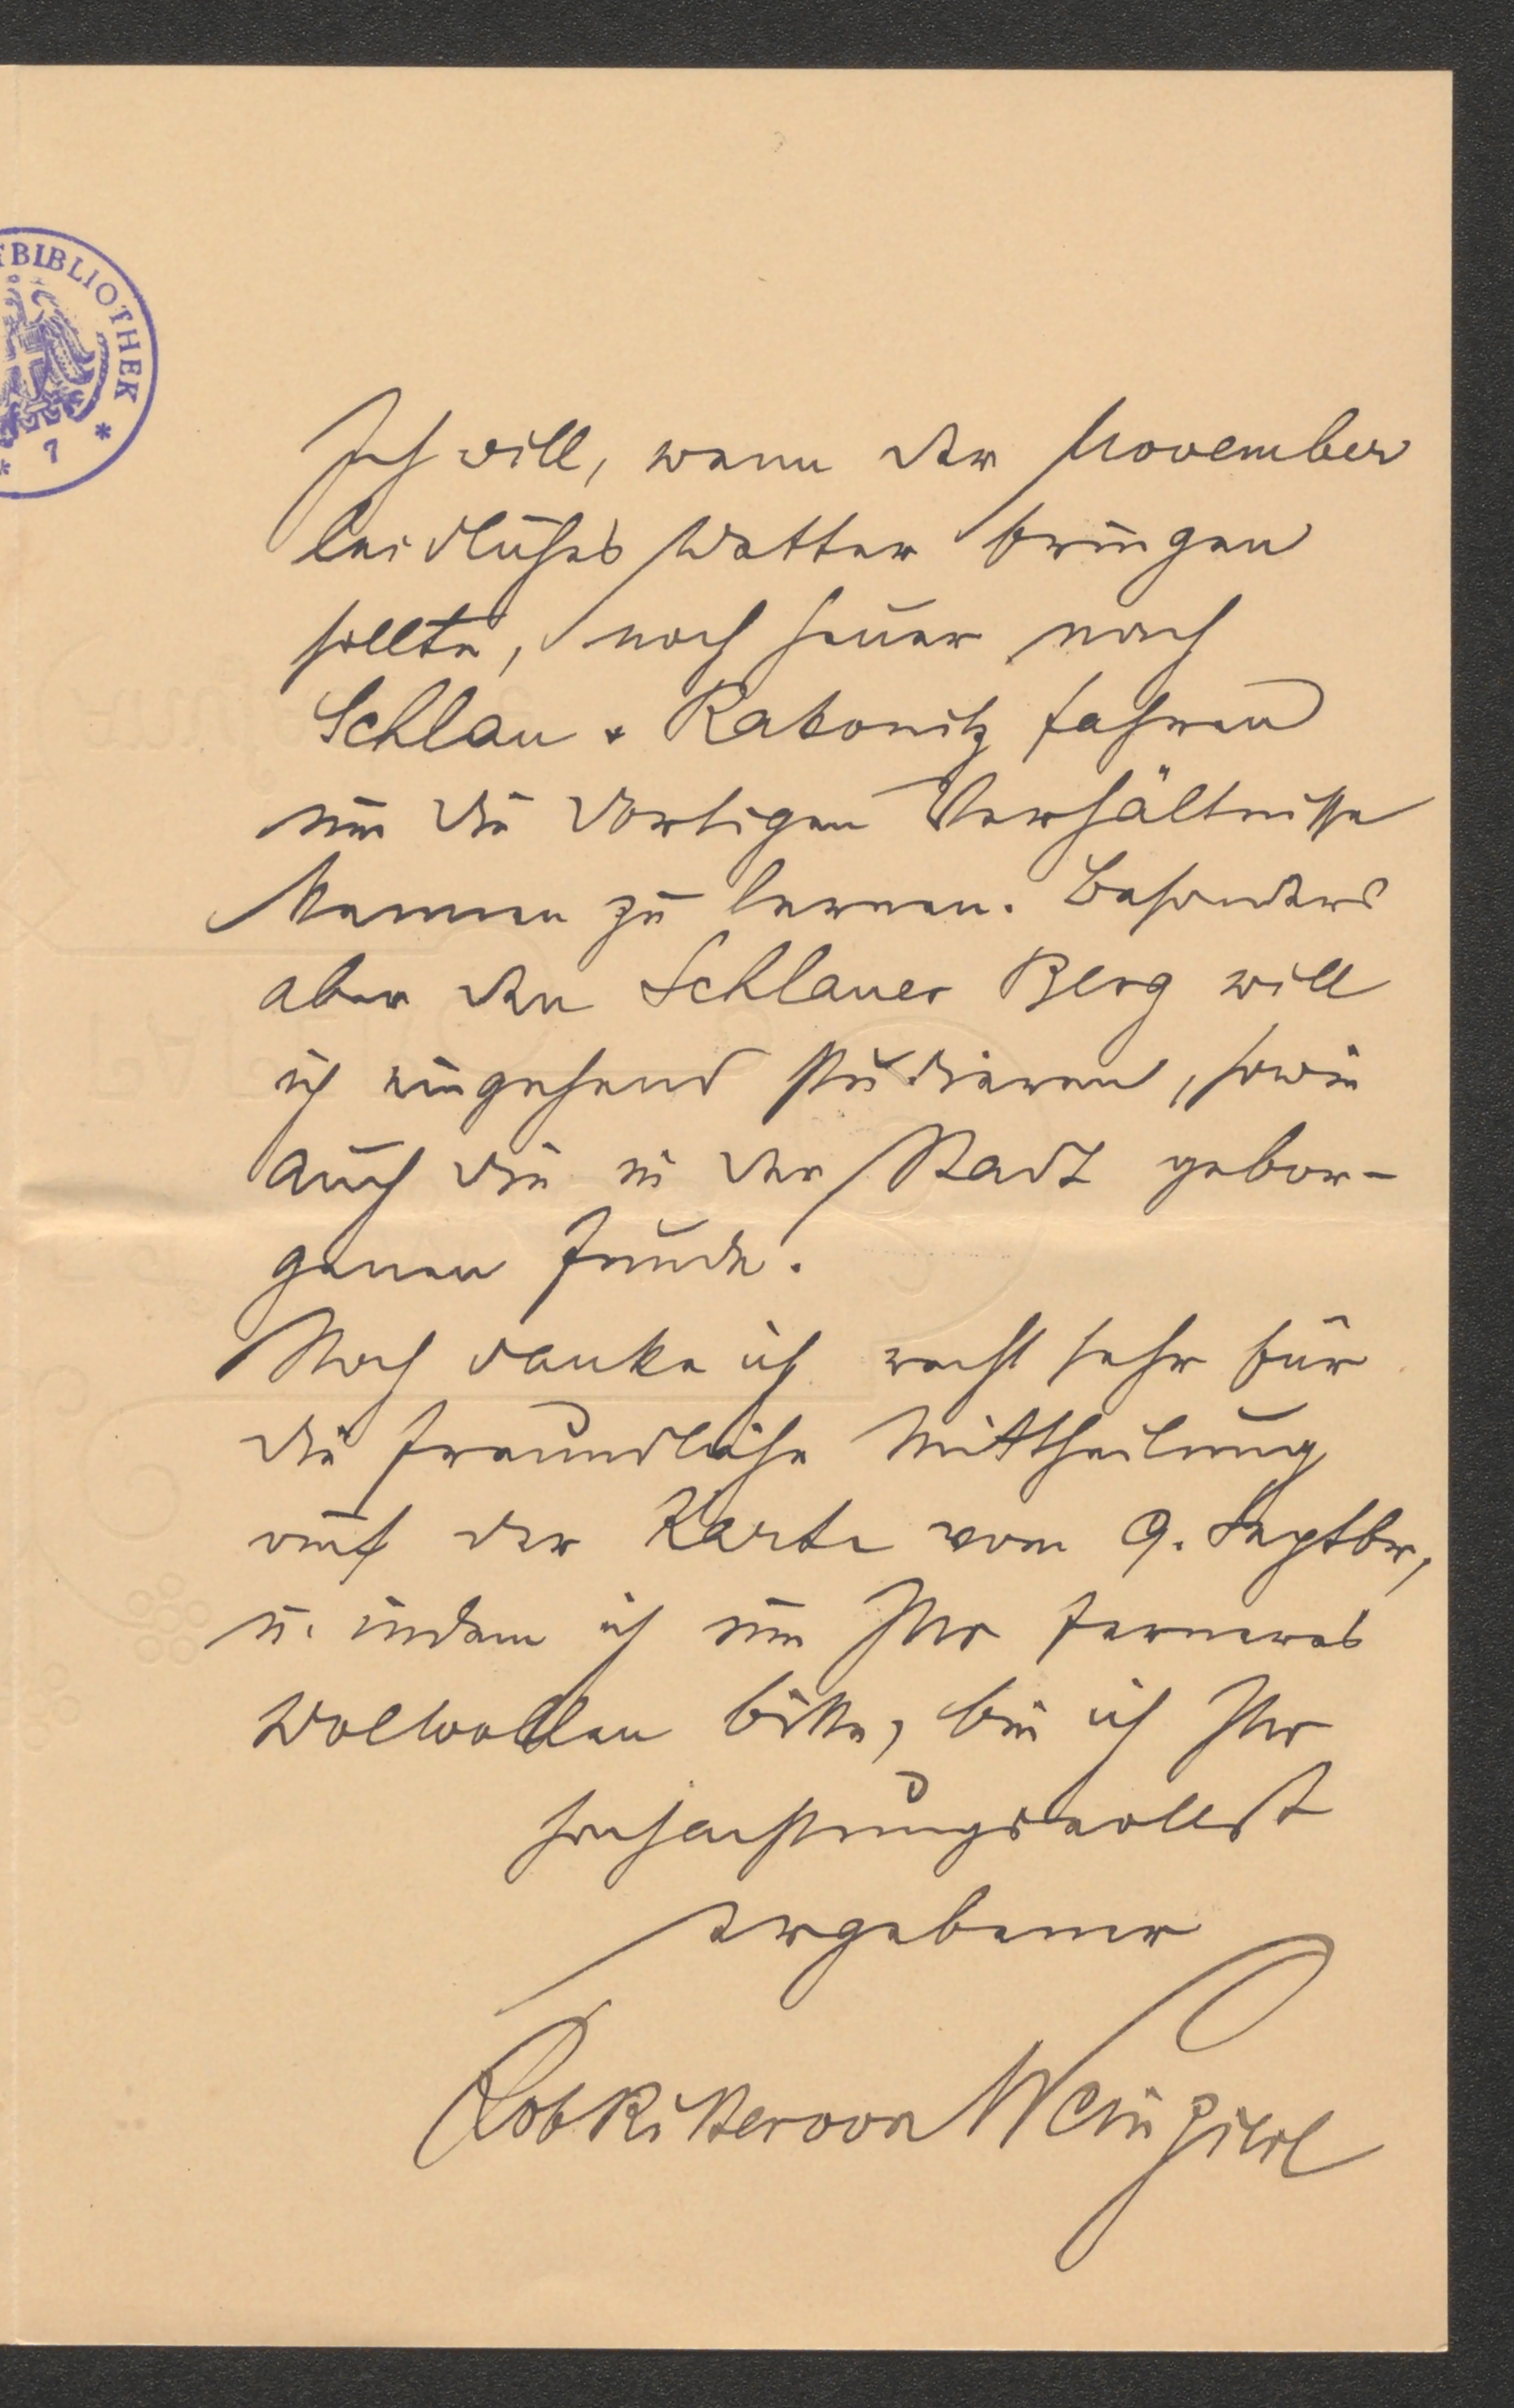 FBIBLIOTHEK
* 7 *
Ich will, wenn der November
leidliches Wetter bringen
sollte, noch heuer nach
Schlan + Rakonitz fahren
um die dortigen Verhältnisse
kennen zu lernen. Besonders
aber den Schlaner Berg will
ich eingehend studieren, sowie
auch die in der Stadt gebor-
genen Funde.
Noch danke ich recht sehr für
die freundliche Mittheilung
auf der Karte vom 9. Septbr,
u. indem ich um Ihr ferneres
Wolwollen bitte, bin ich Ihr
hochachtungsvollst
ergebener
Rob Ritter von Weinzierl